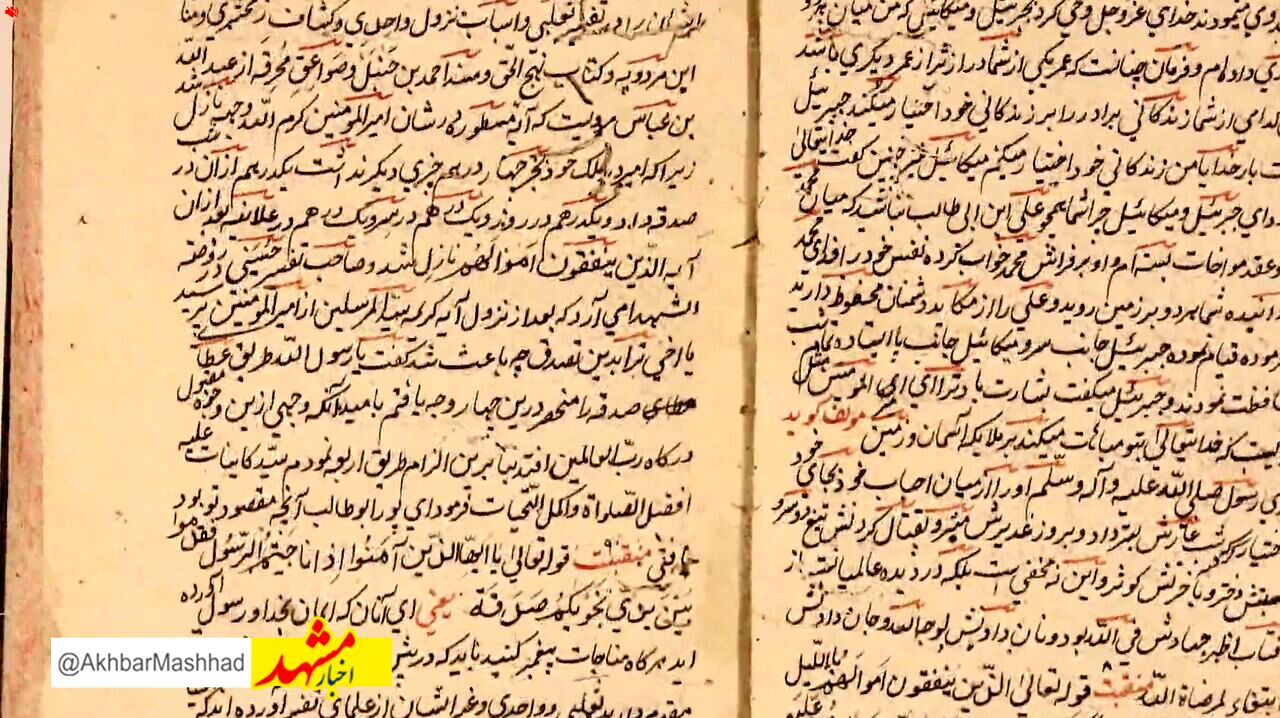 جبرئیل و میکائیل
ی داد لام و فرمان چنانست که عمر یکی از شما دراز تر از عمر دیگری باشد
کدامی از شما زندگانی برادر را بر زندگانی خود اختیار میکند جبرئیل
ت بار خدایا من زندگانی خود اختیار میکنم میکائیل نیز چنین گفت خدایتعالی
دای جبرئیل و میکائیل چرا شما همچو علی ابن ابی طالب نباشید که میان محمد
عقد مواخات بسته ام و او بر فراش محمد خواب کرده نفس خود را فدای محمد
شما هر دو بر زمین روید و علی را از مکاید دشمنان محفوظ دارید
موده قیام نموده جبرئیل جانب سر و میکائیل جانب پا ایستاده تمام شب
افظت نمودند و جبرئیل میگفت بشارت باد ترا ای امیر المومنین مثل
یست که خدا یتعالی بتو مباهات میکند بر ملایکه آسمان و زمین مولف گوید
رسول صلی الله علیه و آله و سلم او را از میان اصحاب خود بجای خود
و بروز غدیرش
دختر و بآخرتش کوثر و این نه مخفی است بلکه در دیده عالمیان از
فتاب اظهر جهادش فی الله بود و نان دادنش لوجه الله و جان دادنش
ابتغاء لمرضاة الله منقبت ۸ قوله تعالی الذین ینفقون اموالهم باللیل
تفسیر ثعلبی و اسباب نزول واحدی و کشاف زمخشری و مناقب
ابن مردویه و کتاب نهج الحق و مسند احمد بن حنبل و صواعق محرقه از عبد الله
بن عباس مرویست که آیه مسطوره در شان امیر المومنین کرم الله وجهه نازل شد
زیرا که امیر در ملک خود بجز چهار درهم چیزی دیگر نداشت یکدرهم ازان در شب
صدقه داد و یکدرهم در روز و یک درهم در سر و یک درهم در علانیه بعد ازان
آیه الذین ینفقون اموالهم نازل شد و صاحب تفسیر حسینی در روضة
الشهدا می آرد که بعد از نزول آیه کریمه سید المرسلین از امیر المومنین پرسید
یا اخی ترا بدین تصدق چه باعث شد گفت یا رسول الله طریق عطا
صدقه را منحصر درین چهار وجه یافتم بامید آنکه وجهی ازین وجوه مقبول
درگاه رب العالمین افتد بنابرین الزام طریق اربعه نمودم سید کاینات علیه
افضل الصلوة و اکمل التحیات فرمود ای پور ابو طالب آنچه مقصود تو بود
یافتی منقبت ۹ قوله تعالی یا ایها الذین آمنوا اذا ناجیتم الرسول فقدموا
بین یدی نجویکم صدقة یعنی ای آنان که ایمان بخدا و رسول آورده
اید هرگاه مناجات پیغمبر کنید باید که در پیش
ثعلبی و واحدی و غیر ایشان از علمای تفسیر آورده اند که
@AkhbarMashhad
اخبار مشهد